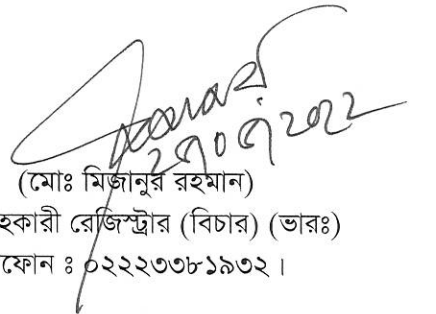 (মোঃ মিজানুর রহমান)
হকারী রেজিস্ট্রার (বিচার) (ভারঃ)
ফোন ঃ ০২২২৩৩৮১৯৩২।